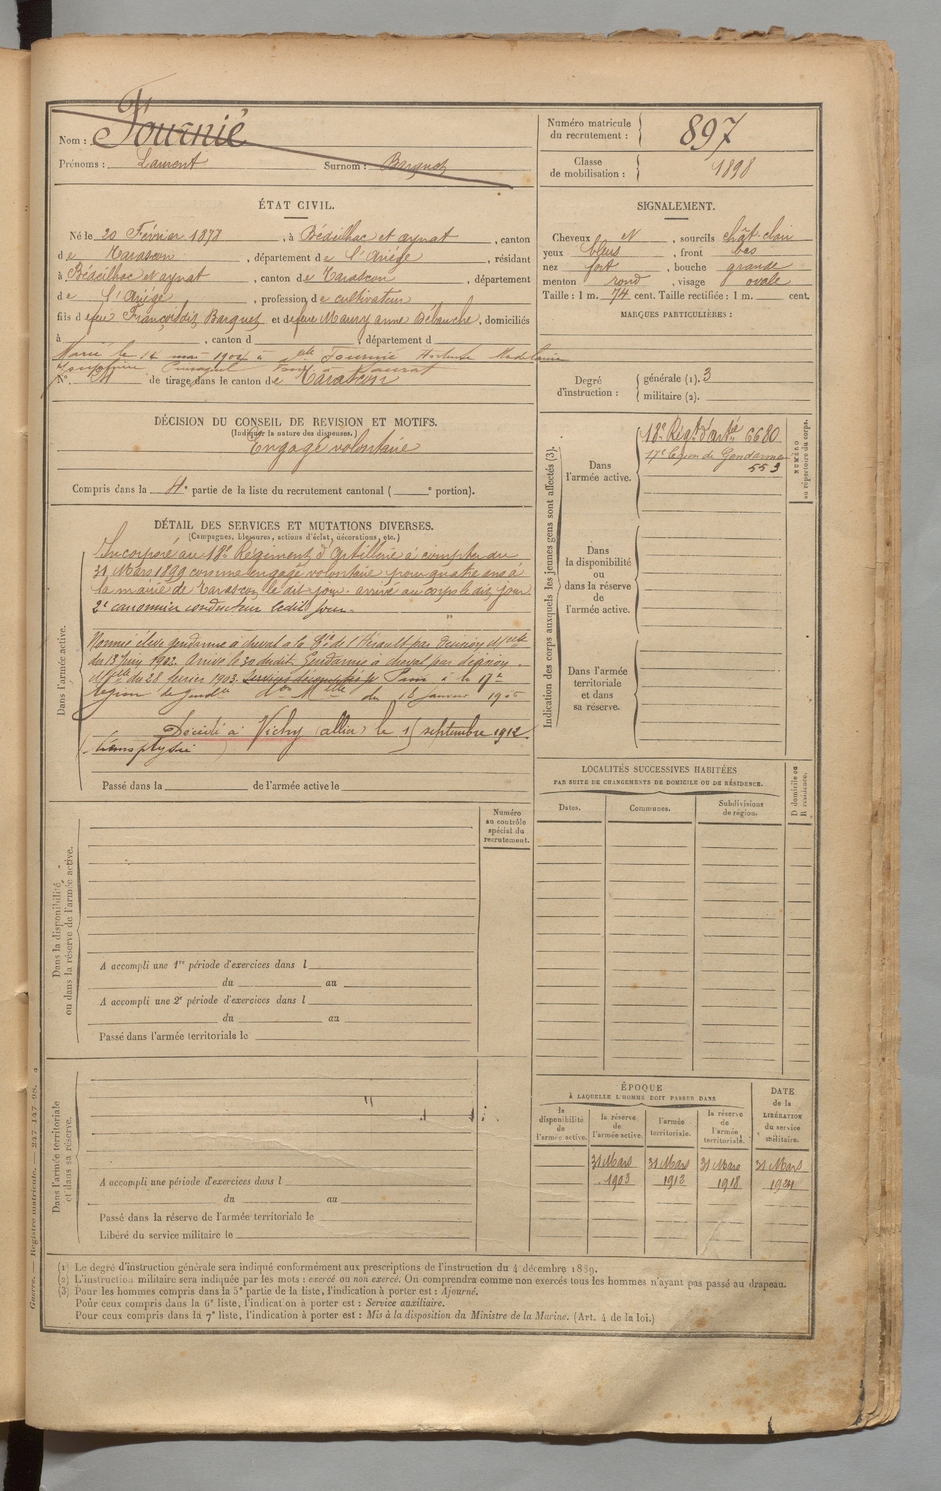 Nom : Fournié
Prénoms : Laurent Surnom : Barquet
Numéro matricule du recrutement : 897
Classe de mobilisation : 1898
ÉTAT CIVIL.
Né le 20 Février 1878, à Bédeilhac et aynat, canton
de Tarascon, département de l'Ariège, résidant
à Bédeilhac et aynat, canton de Tarascon, département
de l'Ariège, profession de cultivateur
fils de feu François dit Barquet et de feue Maury anne , domiciliés
à , canton d , département d
Marié le 14 mai 1904 à Fournié
N° de tirage dans le canton de Tarascon
SIGNALEMENT.
Cheveux N , sourcils chât. clair
yeux bleus , front bas
nez fort , bouche grande
menton rond , visage ovale
Taille : 1 m. 74 cent. Taille rectifiée : 1 m. cent.
MARQUES PARTICULIÈRES :
Degré d'instruction : générale (1). 3
militaire (2).
DÉCISION DU CONSEIL DE REVISION ET MOTIFS.
(Indiquer la nature des dispenses.)
Engagé volontaire
Compris dans la 4e partie de la liste du recrutement cantonal ( e portion).
DÉTAIL DES SERVICES ET MUTATIONS DIVERSES.
(Campagnes, blessures, actions d'éclat, décorations, etc.)
Dans l'armée active.
Incorporé au 18e Régiment d'artillerie à compter du
31 Mars 1899 comme engagé volontaire pour quatre ans à
la mairie de Tarascon le dit jour. arrivé au corps le dit jour
2e canonnier conducteur ledit jour.
Nommé élève gendarme à cheval à la Cie de l'Hérault par décision Mlle
du 13 1902. Arrivé le 30 dudit. Gendarme à cheval par décision
Mlle du 28 février 1903. Passé à la 17e
légion de Gendie don Mlle du 18 janvier 1905
Décédé à Vichy (allier) le septembre 1912.
(hémoptysie)
Passé dans la de l'armée active le
Indication des corps auxquels les jeunes gens sont affectés (3).
NUMÉRO au répertoire du corps.
Dans l'armée active.
18e Régt d'artie 6680
17e Légion de Gendarmie
553
Dans la disponibilité ou dans la réserve de l'armée active.
Dans l'armée territoriale et dans sa réserve.
LOCALITÉS SUCCESSIVES HABITÉES
PAR SUITE DE CHANGEMENTS DE DOMICILE OU DE RÉSIDENCE.
Dates. Communes. Subdivisions de région. D domicile ou R résidence.
Numéro au contrôle spécial du recrutement.
Dans la disponibilité ou dans la réserve de l'armée active.
A accompli une 1re période d'exercices dans l
du au
A accompli une 2e période d'exercices dans l
du au
Passé dans l'armée territoriale le
Dans l'armée territoriale et dans sa réserve.
A accompli une période d'exercices dans l
du au
Passé dans la réserve de l'armée territoriale le
Libéré du service militaire le
ÉPOQUE
À LAQUELLE L'HOMME DOIT PASSER DANS
la disponibilité de l'armée active. la réserve de l'armée active. l'armée territoriale. la réserve de l'armée territoriale. DATE de la LIBÉRATION du service militaire.
31 Mars 31 Mars 31 Mars 31 Mars
1903 1912 1918 1924
(1) Le degré d'instruction générale sera indiqué conformément aux prescriptions de l'instruction du 4 décembre 1889.
(2) L'instruction militaire sera indiquée par les mots : exercé ou non exercé. On comprendra comme non exercés tous les hommes n'ayant pas passé au drapeau.
(3) Pour les hommes compris dans la 5e partie de la liste, l'indication à porter est : Ajourné.
Pour ceux compris dans la 6e liste, l'indication à porter est : Service auxiliaire.
Pour ceux compris dans la 7e liste, l'indication à porter est : Mis à la disposition du Ministre de la Marine. (Art. 4 de la loi.)
Guerre. — Registre matricule. — 247-147-98. 4